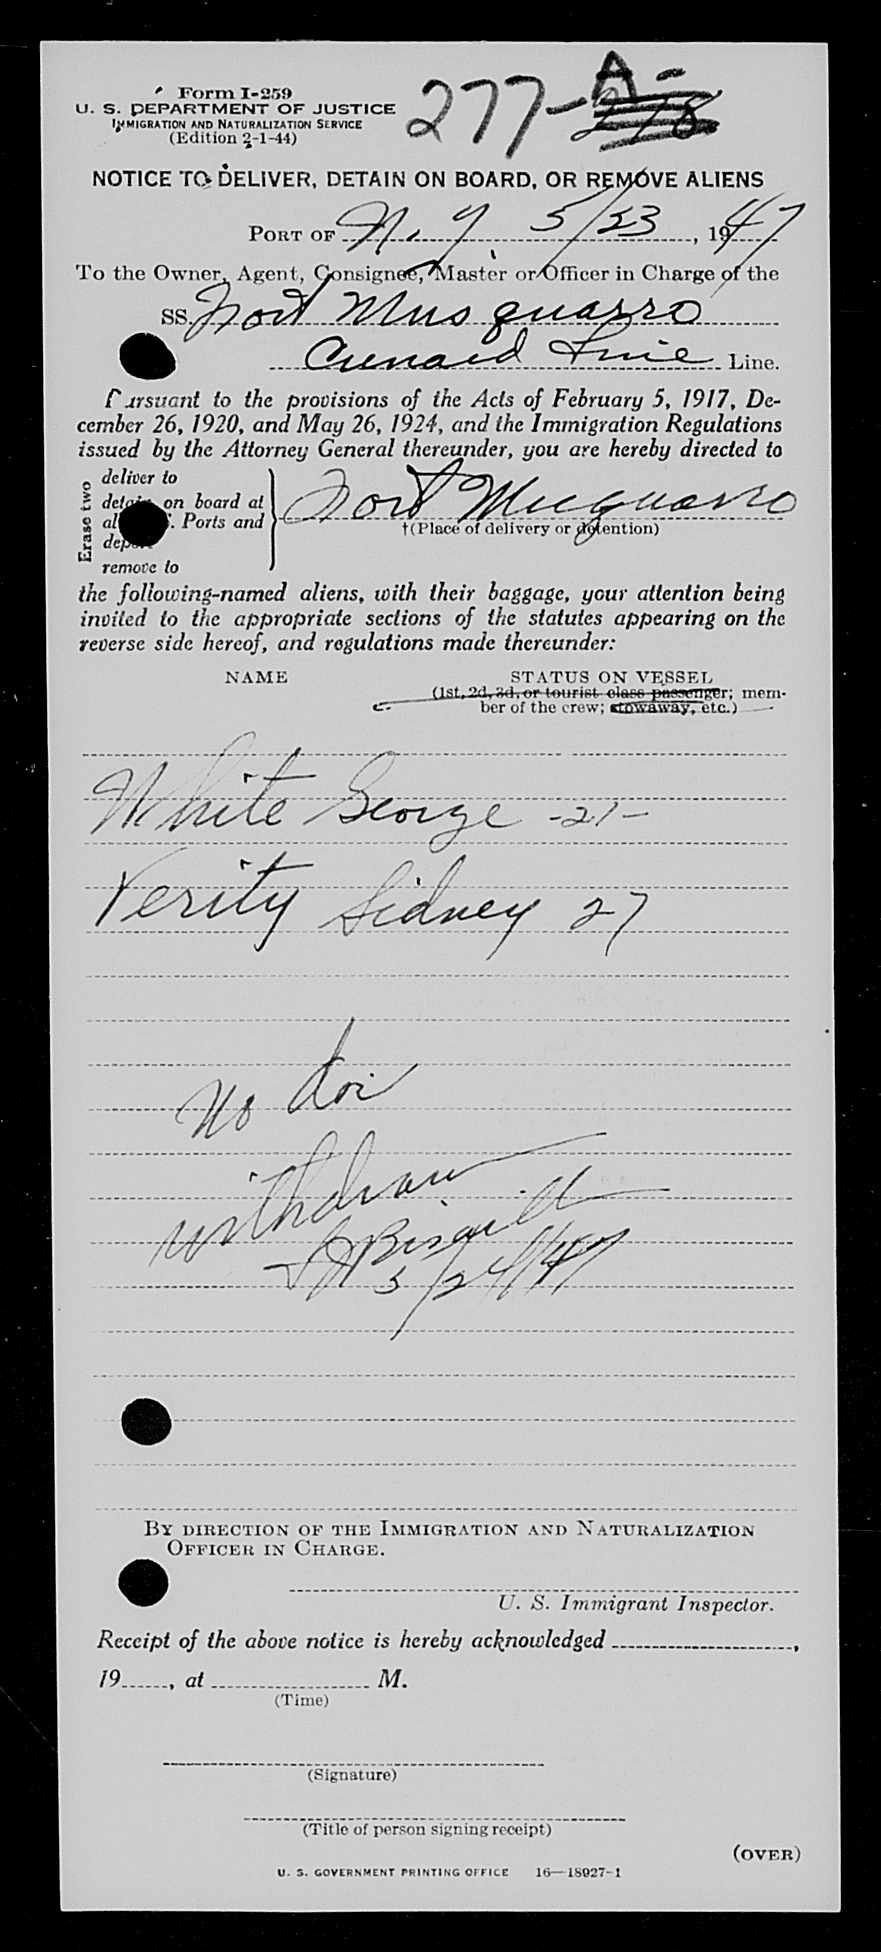 Form I-259
U. S. DEPARTMENT OF JUSTICE
IMMIGRATION AND NATURALIZATION SERVICE
(Edition 2-1-44)
277-A-
NOTICE TO DELIVER, DETAIN ON BOARD, OR REMOVE ALIENS
PORT OF N. Y 5/23, 1947
To the Owner, Agent, Consignee, Master or Officer in Charge of the
SS. Fort Musquarro
Cunard Line Line.
Pursuant to the provisions of the Acts of February 5, 1917, De-
cember 26, 1920, and May 26, 1924, and the Immigration Regulations
issued by the Attorney General thereunder, you are hereby directed to
Erase two
deliver to
detain on board at
Ports and
remove to
Fort Musquarro
†(Place of delivery or detention)
the following-named aliens, with their baggage, your attention being
invited to the appropriate sections of the statutes appearing on the
reverse side hereof, and regulations made thereunder:
NAME STATUS ON VESSEL
(1st, 2d, 3d, or tourist class passenger; mem-
ber of the crew; stowaway, etc.)
White George -21-
Verity Sidney 27
No
withdrawn
5/24/47
BY DIRECTION OF THE IMMIGRATION AND NATURALIZATION
OFFICER IN CHARGE.
U. S. Immigrant Inspector.
Receipt of the above notice is hereby acknowledged ,
19 , at M.
(Time)
(Signature)
(Title of person signing receipt)
(OVER)
U. S. GOVERNMENT PRINTING OFFICE 16—18927-1